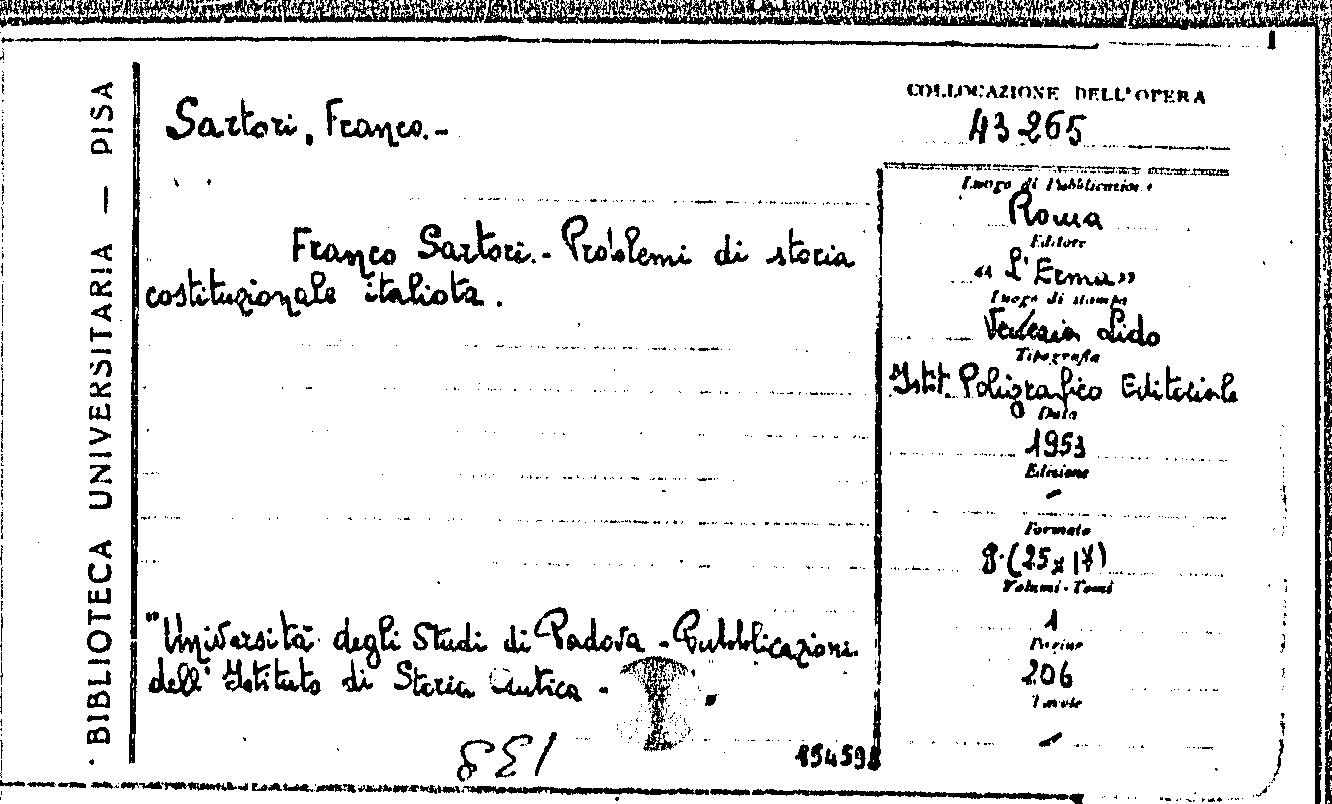 BIBLIOTECA UNIVERSITARIA — PISA
Sartori, Franco.-
Franco Sartori.- Problemi di storia
costituzionale italiota.
"Università degli Studi di Padova - Pubblicazioni
dell'Istituto di Storia Antica -
138
COLLOCAZIONE DELL'OPERA
43265
Luogo di Pubblicazione
Roma
Editore
"L'Erma"
Luogo di stampa
Venezia Lido
Tipografia
Istit. Poligrafico Editoriale
Data
1953
Edizione
-
Formato
8° (25 x 17)
Volumi - Tomi
1
Pagine
206
Tavole
-